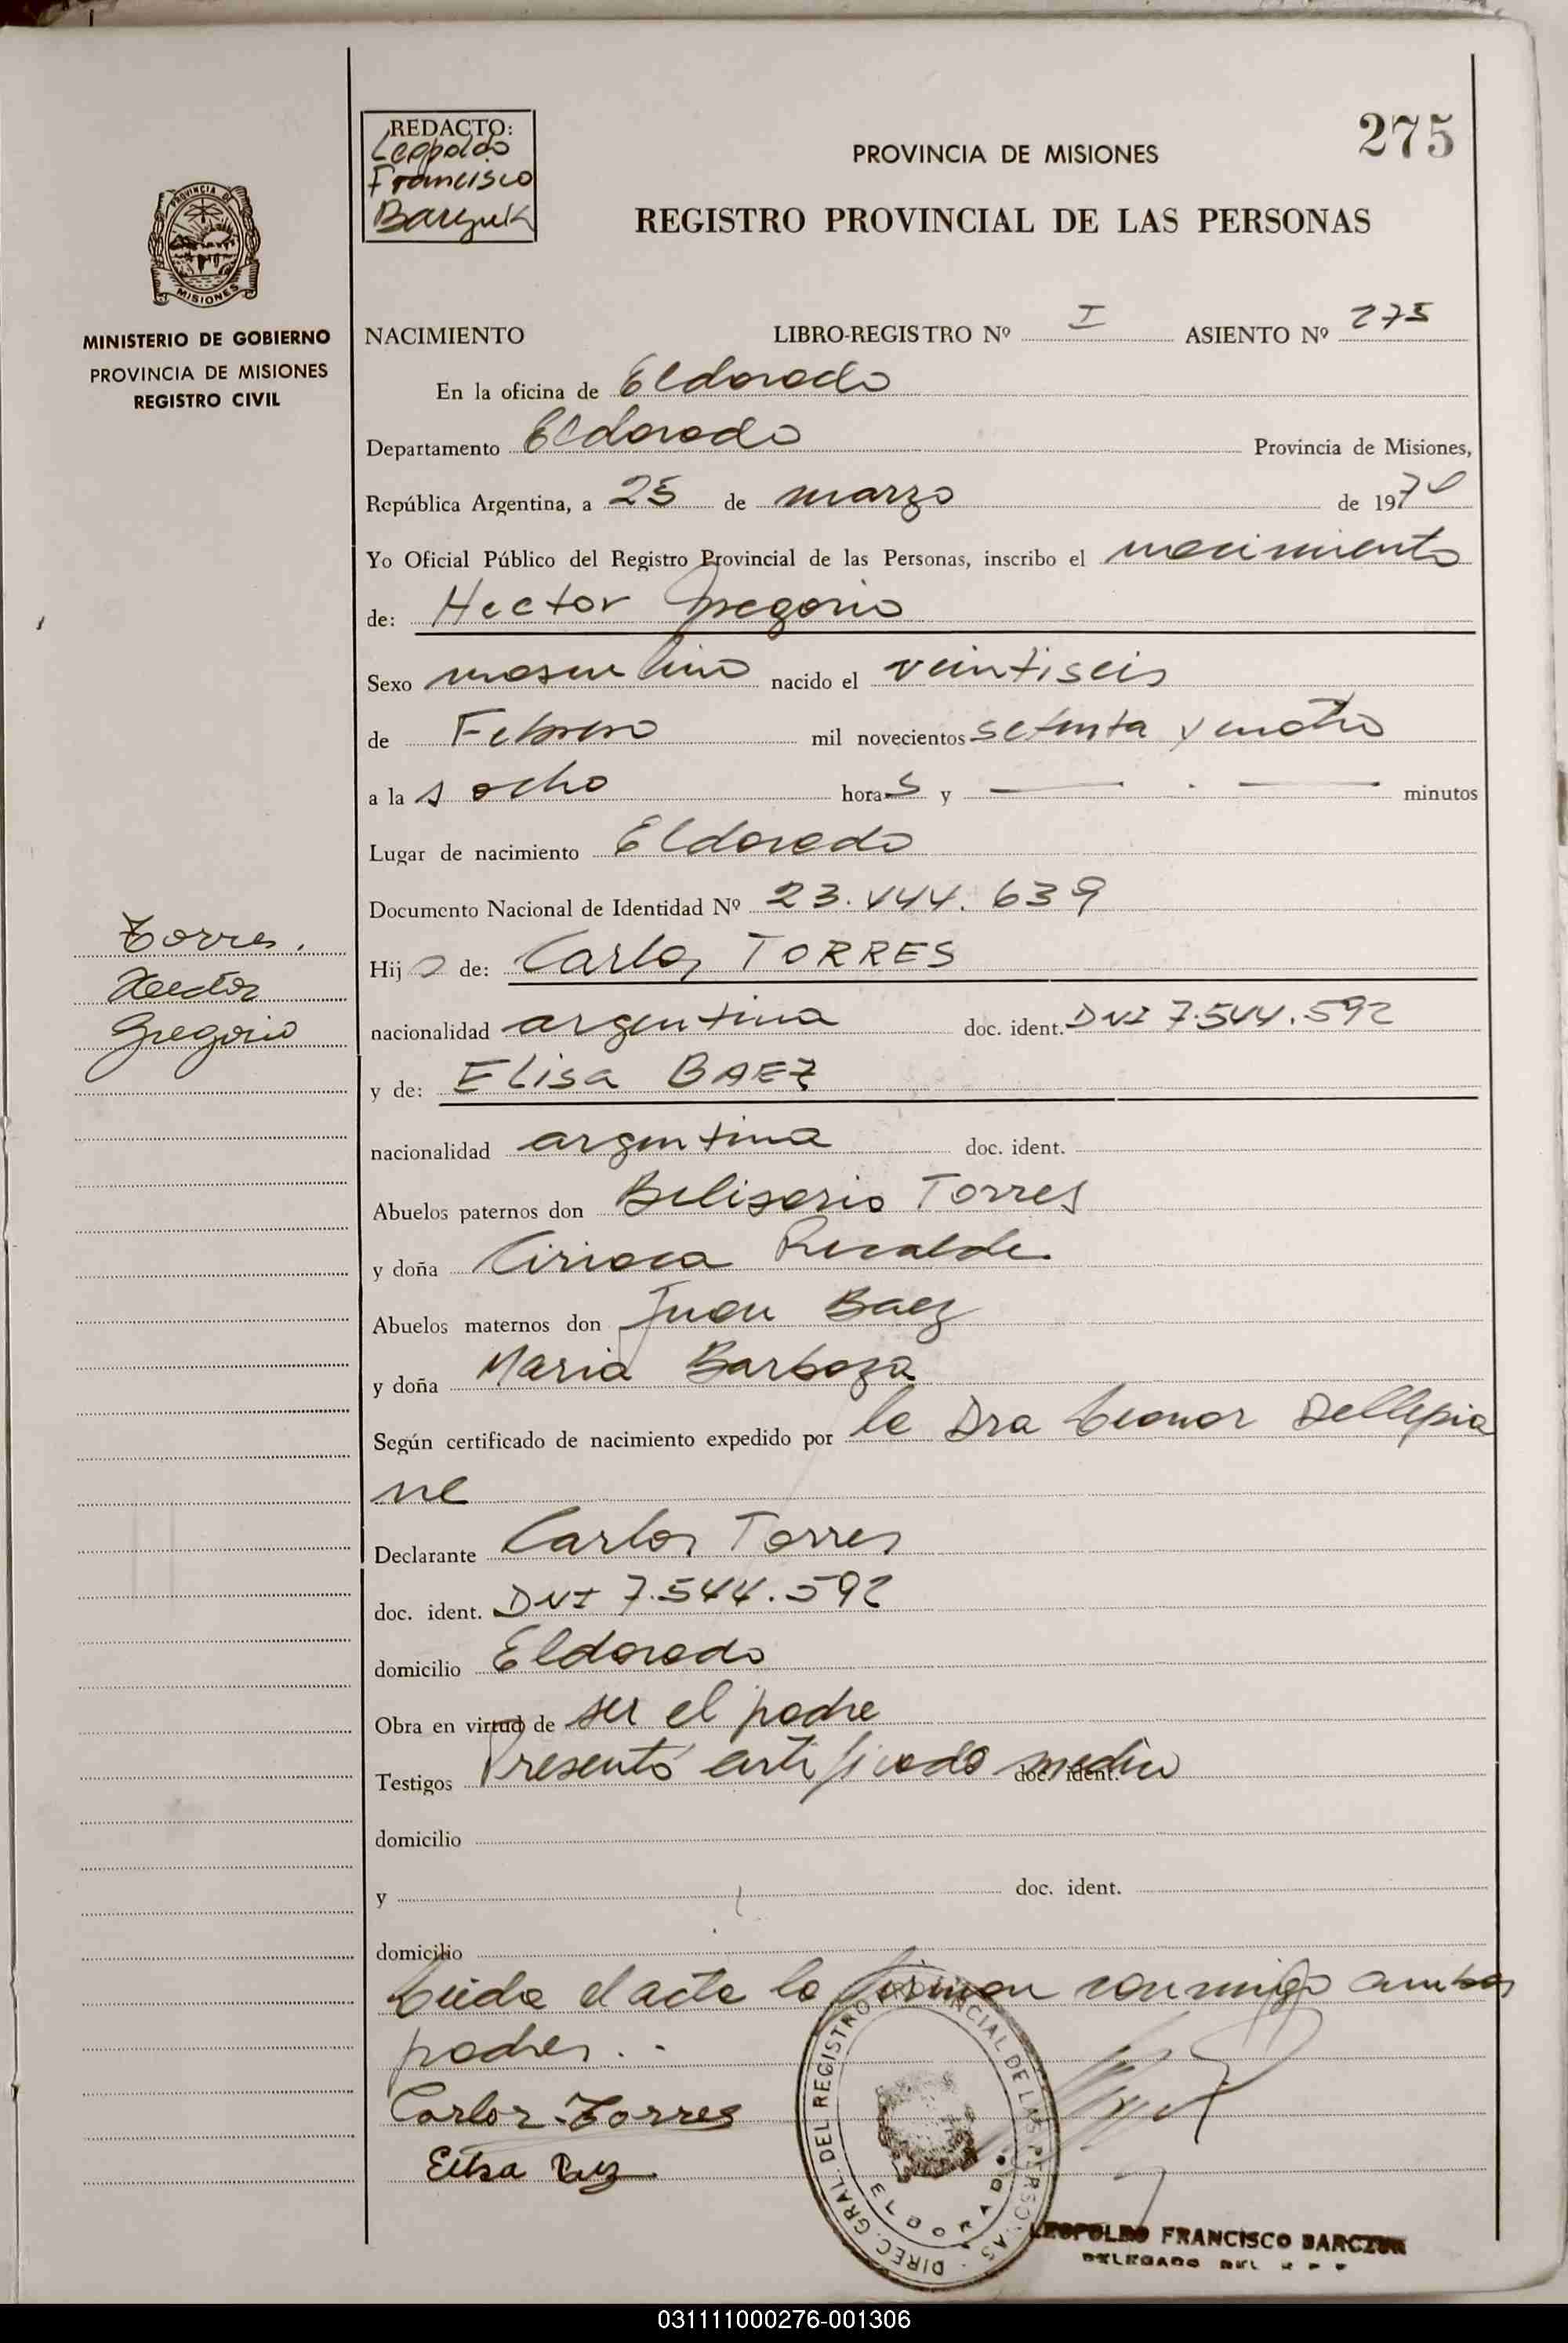 275
REDACTO:
Leopoldo
Francisco
Barczuk
PROVINCIA DE MISIONES
REGISTRO PROVINCIAL DE LAS PERSONAS
PROVINCIA DE
MISIONES
MINISTERIO DE GOBIERNO
PROVINCIA DE MISIONES
REGISTRO CIVIL
NACIMIENTO LIBRO-REGISTRO Nº I ASIENTO Nº 275
En la oficina de Eldorado
Departamento Eldorado Provincia de Misiones,
República Argentina, a 25 de marzo de 1974
Yo Oficial Público del Registro Provincial de las Personas, inscribo el nacimiento
de: Hector Gregorio
Sexo masculino nacido el veintiseis
de Febrero mil novecientos setenta y cuatro
a la s ocho horas y — . — minutos
Lugar de nacimiento Eldorado
Documento Nacional de Identidad Nº 23.444.639
Torres.
Hector
Gregorio
Hijo de: Carlos TORRES
nacionalidad argentina doc. ident. DNI 7.544.592
y de: Elisa BAEZ
nacionalidad argentina doc. ident.
Abuelos paternos don Belisario Torres
y doña Ciriaca Recalde
Abuelos maternos don Juan Baez
y doña Maria Barboza
Según certificado de nacimiento expedido por la Dra Leonor Dellepia
ne
Declarante Carlos Torres
doc. ident. DNI 7.544.592
domicilio Eldorado
Obra en virtud de ser el padre
Testigos Presentó certificado medico doc. ident.
domicilio
y doc. ident.
domicilio
Leida el acta la firman conmigo ambos
padres..
Carlos Torres
Elisa Baez
DIREC. GRAL. DEL REGISTRO PROVINCIAL DE LAS PERSONAS
ELDORADO
LEOPOLDO FRANCISCO BARCZUK
DELEGADO DEL
031111000276-001306